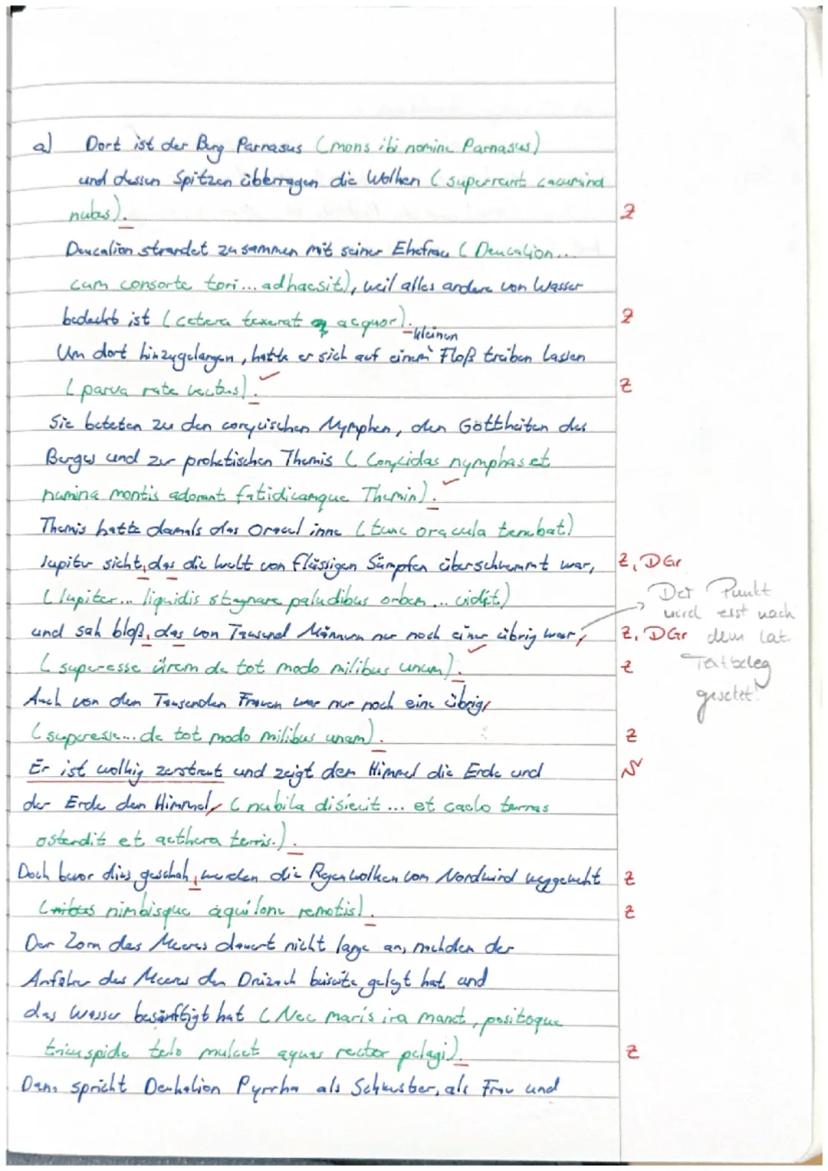 a) Dort ist der Berg Parnasus (mons ibi nomine Parnasus)
und dessen Spitzen überragen die Wolken (superrant cacumina
nubes). Z
Deucalion strandet zusammen mit seiner Ehefrau (Deucalion...
cum consorte tori... adhaesit), weil alles andere von Wasser
bedeckt ist (cetera texerat aequor). Z
Um dort hinzugelangen, hatte er sich auf einem kleinen Floß treiben lassen
(parva rate vectus). Z
Sie beteten zu den corycischen Nymphen, den Gottheiten des
Berges und zur prohetischen Themis (Corycidas nymphas et
numina montis adorant fatidicamque Themin).
Themis hatte damals das Oracul inne (tunc oracula tenebat)
Jupiter sieht, das die Welt von flüssigen Sümpfen überschwemmt war, Z, DGr
(Iupiter... liquidis stagnare paludibus orbem... vidit)
und sah bloß, das von Tausend Männern nur noch einer übrig war, Z, DGr
(superesse virem de tot modo milibus unum). Z
Der Punkt
wird erst nach
dem lat.
Textbeleg
gesetzt!
Auch von den Tausenden Frauen war nur noch eine übrig,
(superesse... de tot modo milibus unam). Z
Er ist wolkig zerstreut und zeigt dem Himmel die Erde und
der Erde den Himmel, (nubila disiecit ... et caelo terras
ostendit et aethera terris.).
Doch bevor dies geschah, wurden die Regenwolken vom Nordwind weggeweht Z
(nimbisque aquilone remotis). Z
Der Zorn des Meeres dauert nicht lange an, nachden der
Anführer des Meeres den Dreizack beiseite gelegt hat und
das Wasser besänftigt hat (Nec maris ira manet, positoque
tricuspide telo mulcet aquas rector pelagi). Z
Dann spricht Deukalion Pyrrha als Schwester, als Frau und